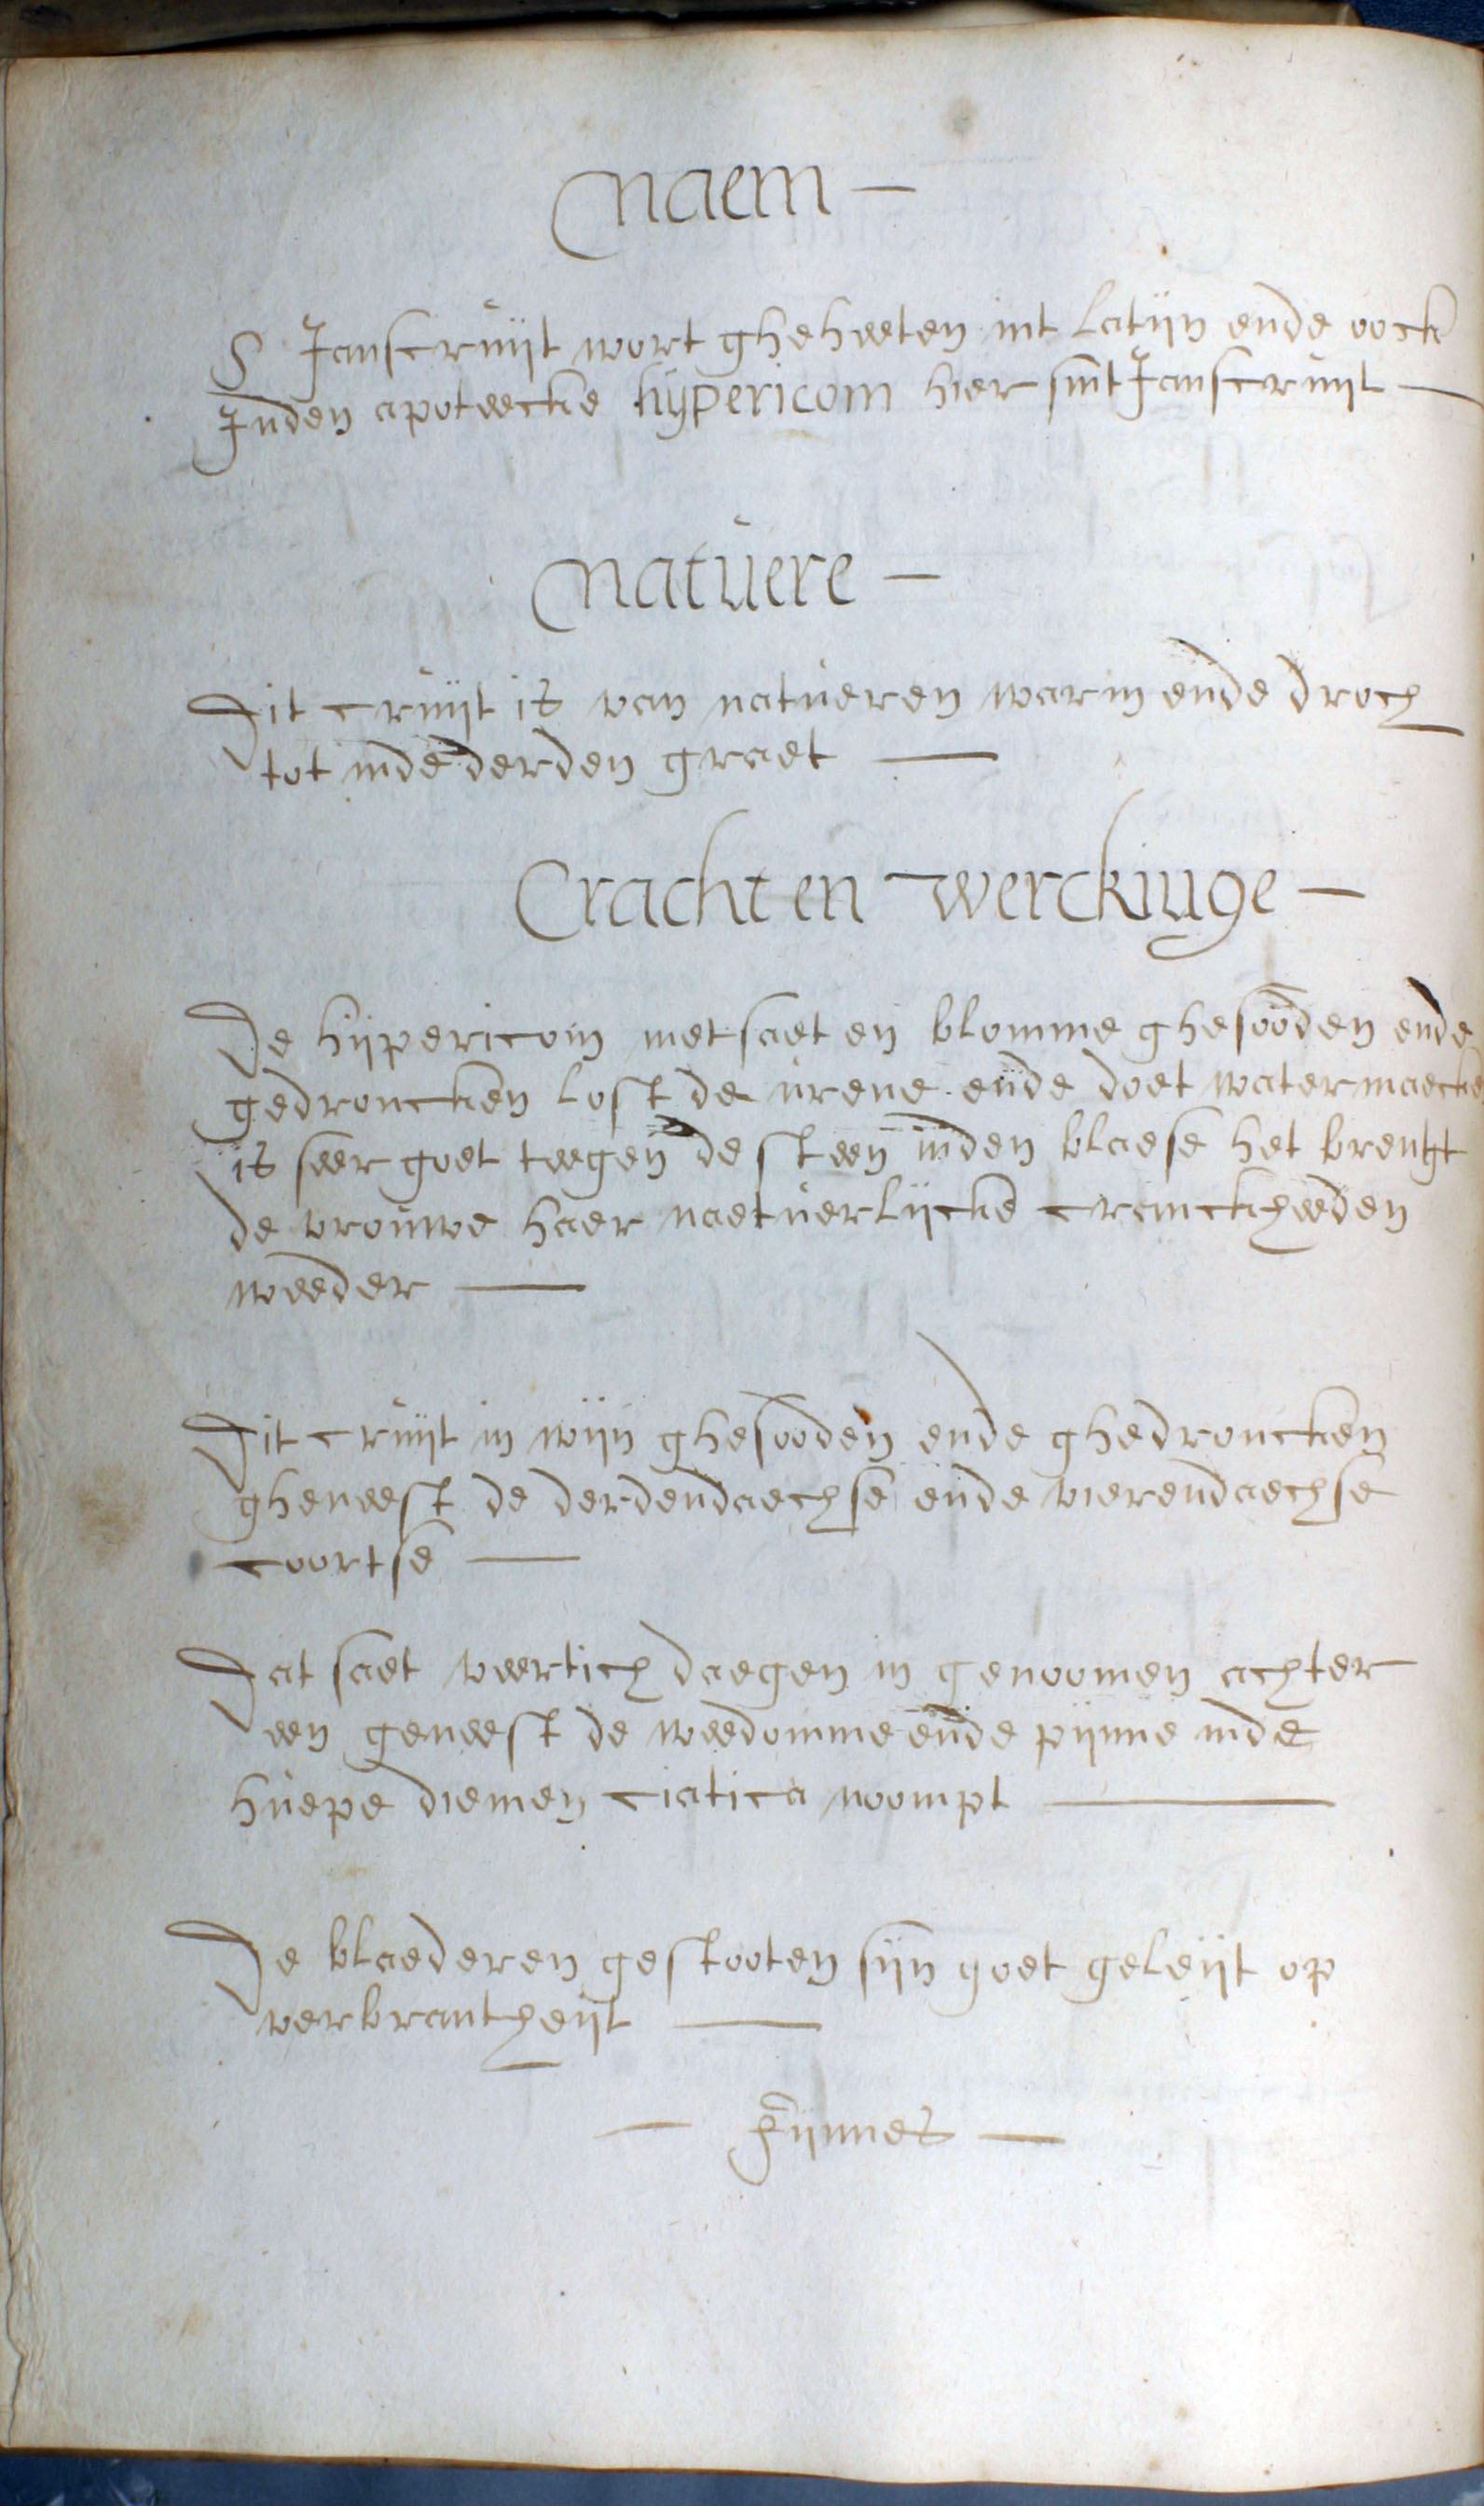 Naem —
S Janscruijt wort gheheeten int Latijn ende oock
Inden apoteecke hijpericom hier sint Janscruijt —
Natuere —
Dit cruijt is van natueren warm ende droch
tot inde derden graet —
Cracht en werckinge —
De hijpericom met saet en blomme ghesooden ende
gedroncken lost de urene ende doet water maecke
is seer goet teegen de steen inden blaese het brenght
de vrouwe haer naetuerlijcke cranckheeden
weeder —
Dit cruijt in wijn ghesooden ende ghedroncken
gheneest de derdendaechse ende vierendaechse
coortse —
Dat saet veertich daegen in genoomen achter
een geneest de weedomme ende pijnne inde
huepe diemen ciatica noompt —
De blaederen gestooten sijn goet geleijt op
verbrantheijt —
— Fijnnes —